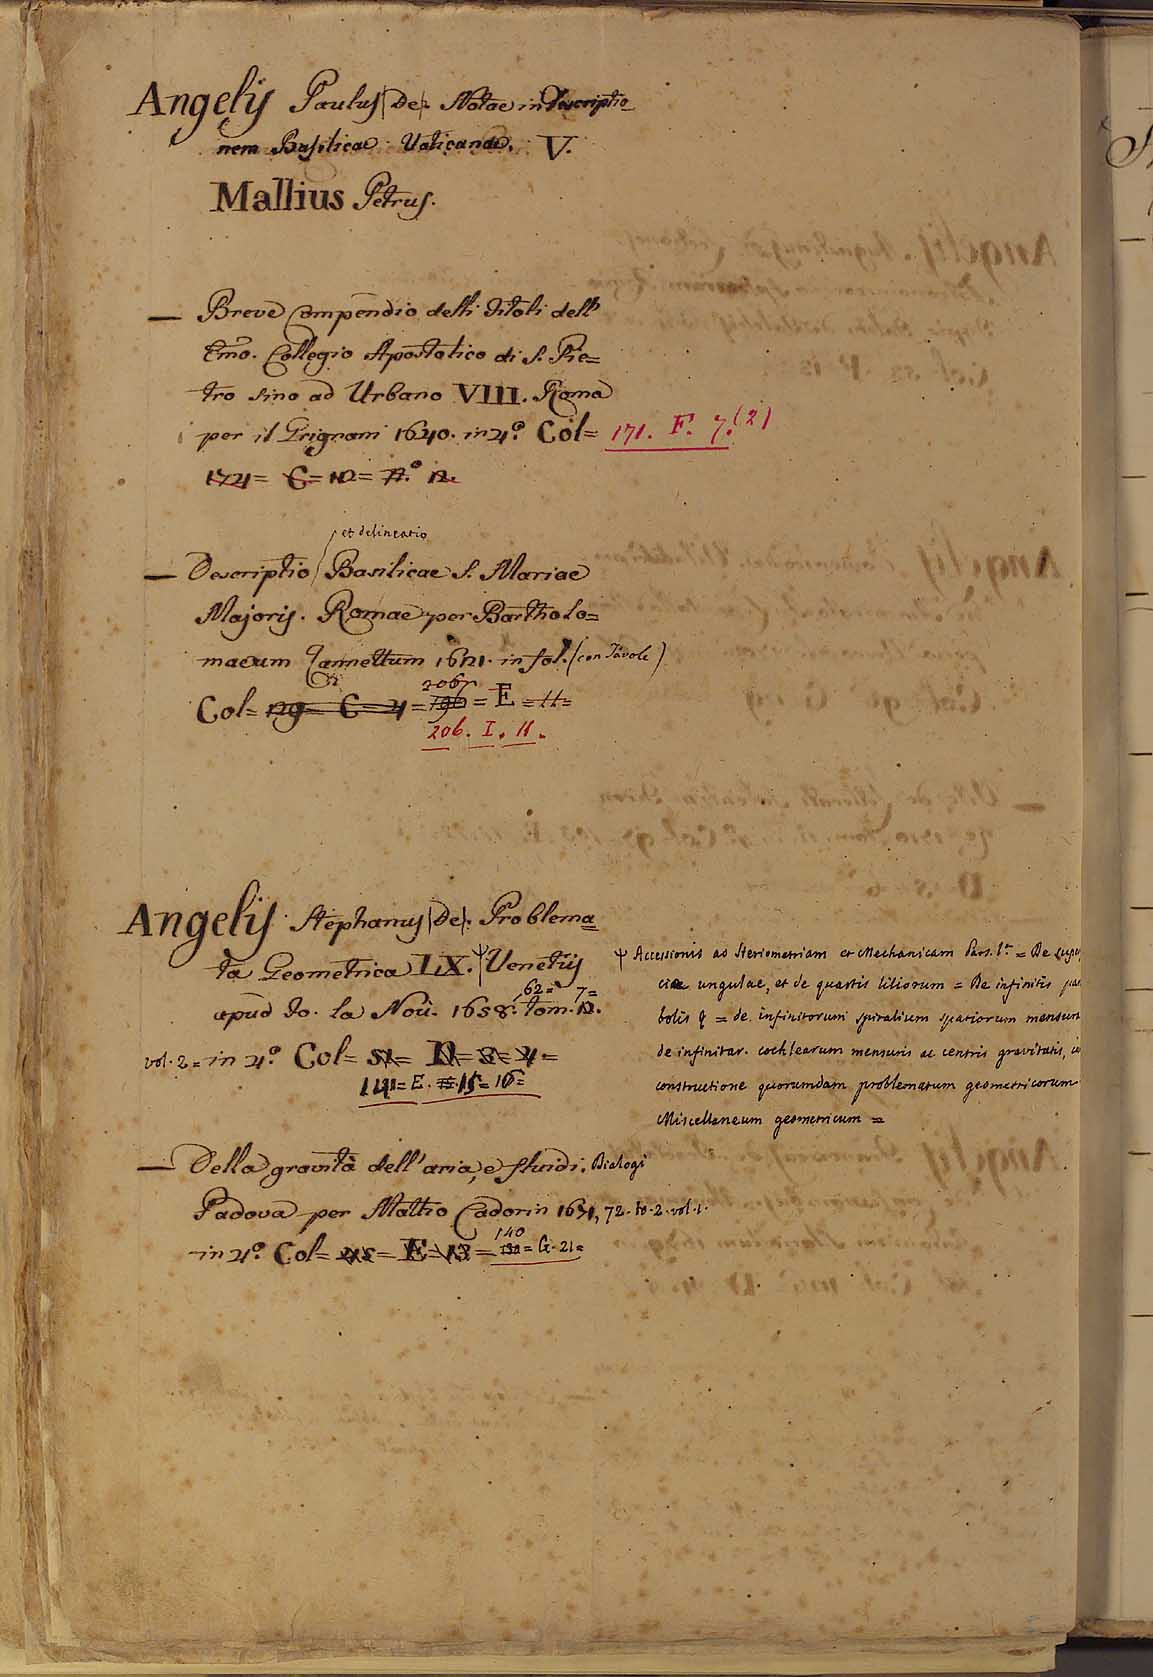 Angelis Paulus (De). Notae in Descriptio=
nem Basilicae Vaticanae. V.
Mallius Petrus.
— Breve Compendio delli Titoli dell'
Emo. Collegio Apostolico di S. Pie=
tro sino ad Urbano VIII. Roma
per il Grignani 1640. in 4.° Col= 171. F. 7.(2)
C= N.° 12.
et delineatio
— Descriptio Basilicae S. Mariae
Majoris. Romae per Bartholo=
maeum Zannettum 1621. in fol. (con Tavole)
206
Col= 29= C= 4= = E = 11=
206. I. 11.
Angelis Stephanus (De). Problema=
ta Geometrica LX. Ψ Venetiis
62= 7=
apud Io. La Noù. 1658. tom. 12.
vol. 2= in 4.° Col= 4=
141= E. 15= 16=
Ψ Accessionis ad Steriometriam et Mechanicam Pars 1.a = De super
ciae ungulae, et de quartis liliorum = De infinitis par
bolis = de infinitorum spiralium spatiorum mensura
de infinitar. cochlearum mensuris ac centris gravitatis,
constructione quorumdam problematum geometricorum
Miscellaneum geometricum =
— Della gravità dell'aria, e fluidi. Dialogi
Padova per Mattio Cadorin 1671, 72. to. 2. vol. 1.
140
in 4.° Col= E= 13= = G. 21=